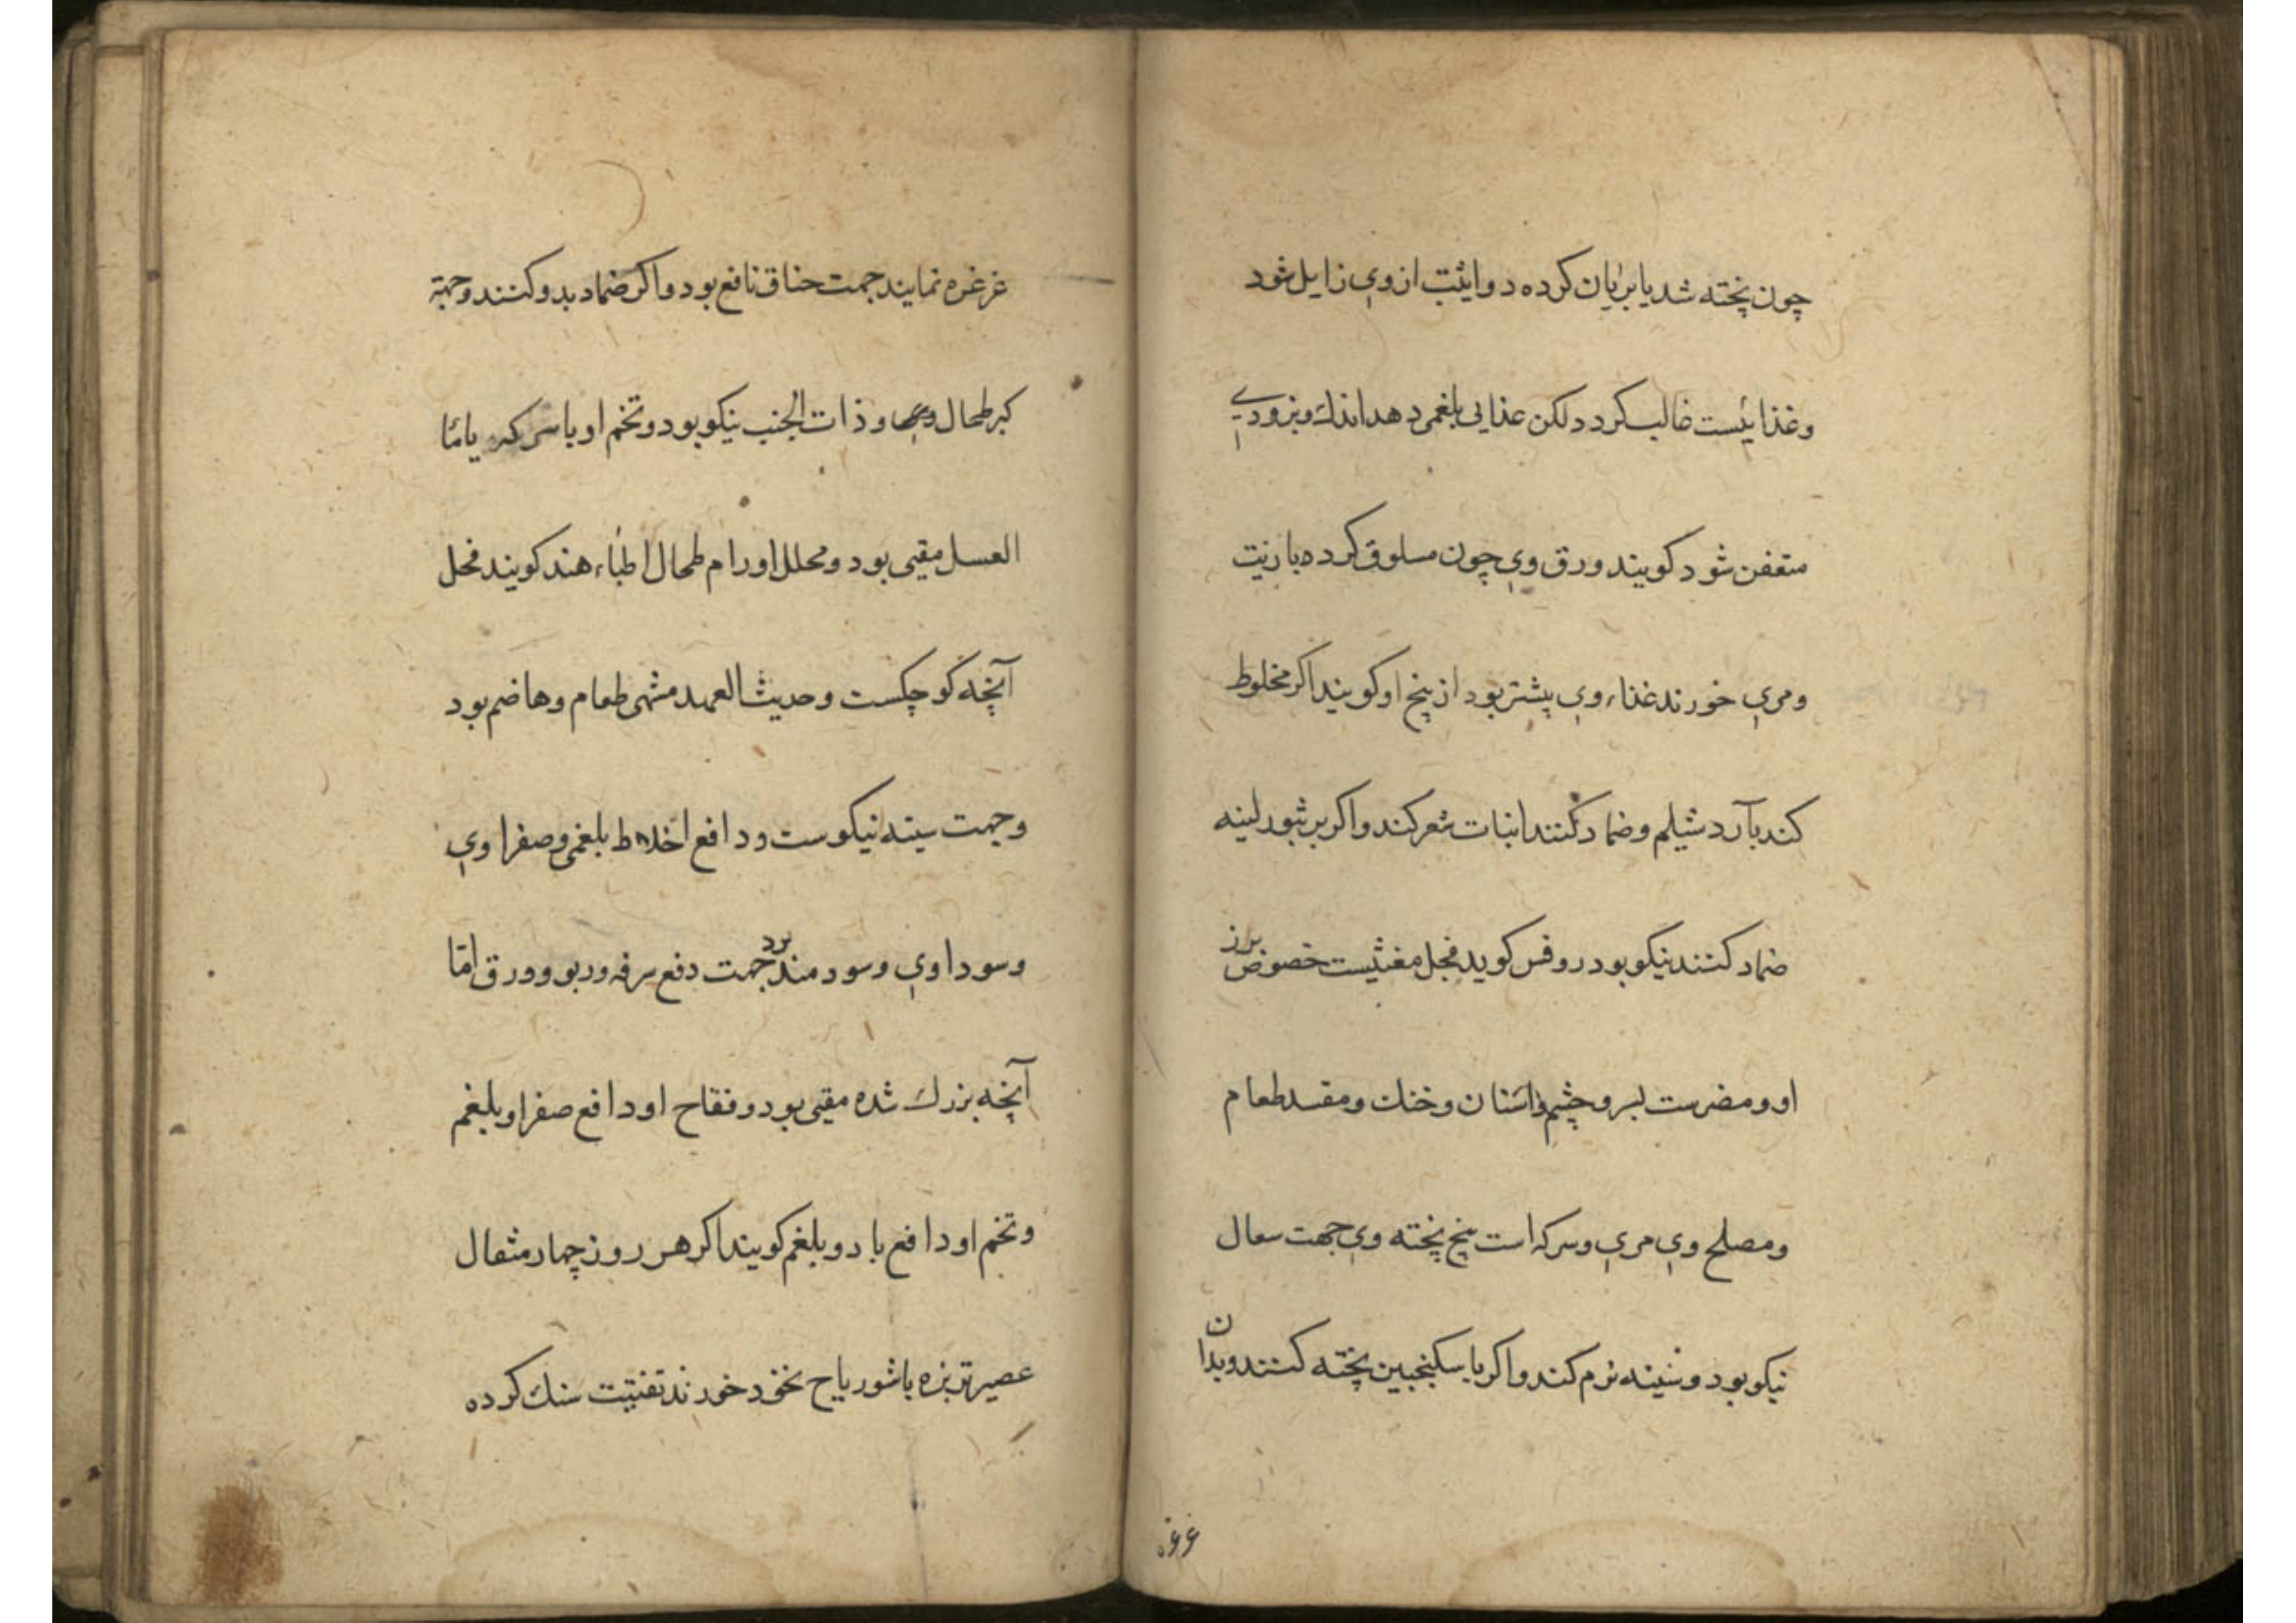 چون پخته شد یا بریان کرده دوائیت از وی زایل شود
وغذائیست غالب کردد لکن غذایی بلغمی دهد اندك وبزودی
متعفن شود کویند ورق وی چون مسلوق کرده با زیت
ومری خورند غذاء وی بیشتر بود از بیخ او کویند اکر مخلوط
کند بآرد شیلم وضماد کنند انبات شعر کند واکر بر بثور لینه
ضماد کنند نیکو بود روفس کوید فجل مغثیست خصوص بزر
او ومضرست بسر وچشم واسنان وحنك ومفسد طعام
ومصلح وی مری وسرکه است بیخ پخته وی جهت سعال
نیکو بود وسینه نرم کند واکر با سکنجبین پخته کنند وبدان
غرغره
غرغره نمایند جهت خناق نافع بود واکر ضماد بدو کنند وجهة
کبر طحال وذات الجنب نیکو بود وتخم او با سرکه یا ماء
العسل مقیی بود ومحلل اورام طحال اطباء هند کویند فجل
آنچه کوچکست وحدیث العهد مشهی طعام وهاضم بود
وجهت سینه نیکوست ودافع اخلاط بلغمی وصفراوی
وسوداوی وسودمند بود جهت دفع سرفه وربو وورق امّا
آنچه بزرك شده مقیی بود وفقاح او دافع صفرا وبلغم
وتخم او دافع باد وبلغم کویند اکر هر روز چهار مثقال
عصیر تربزه با شوریاح نخود خورند تفتیت سنك کرده